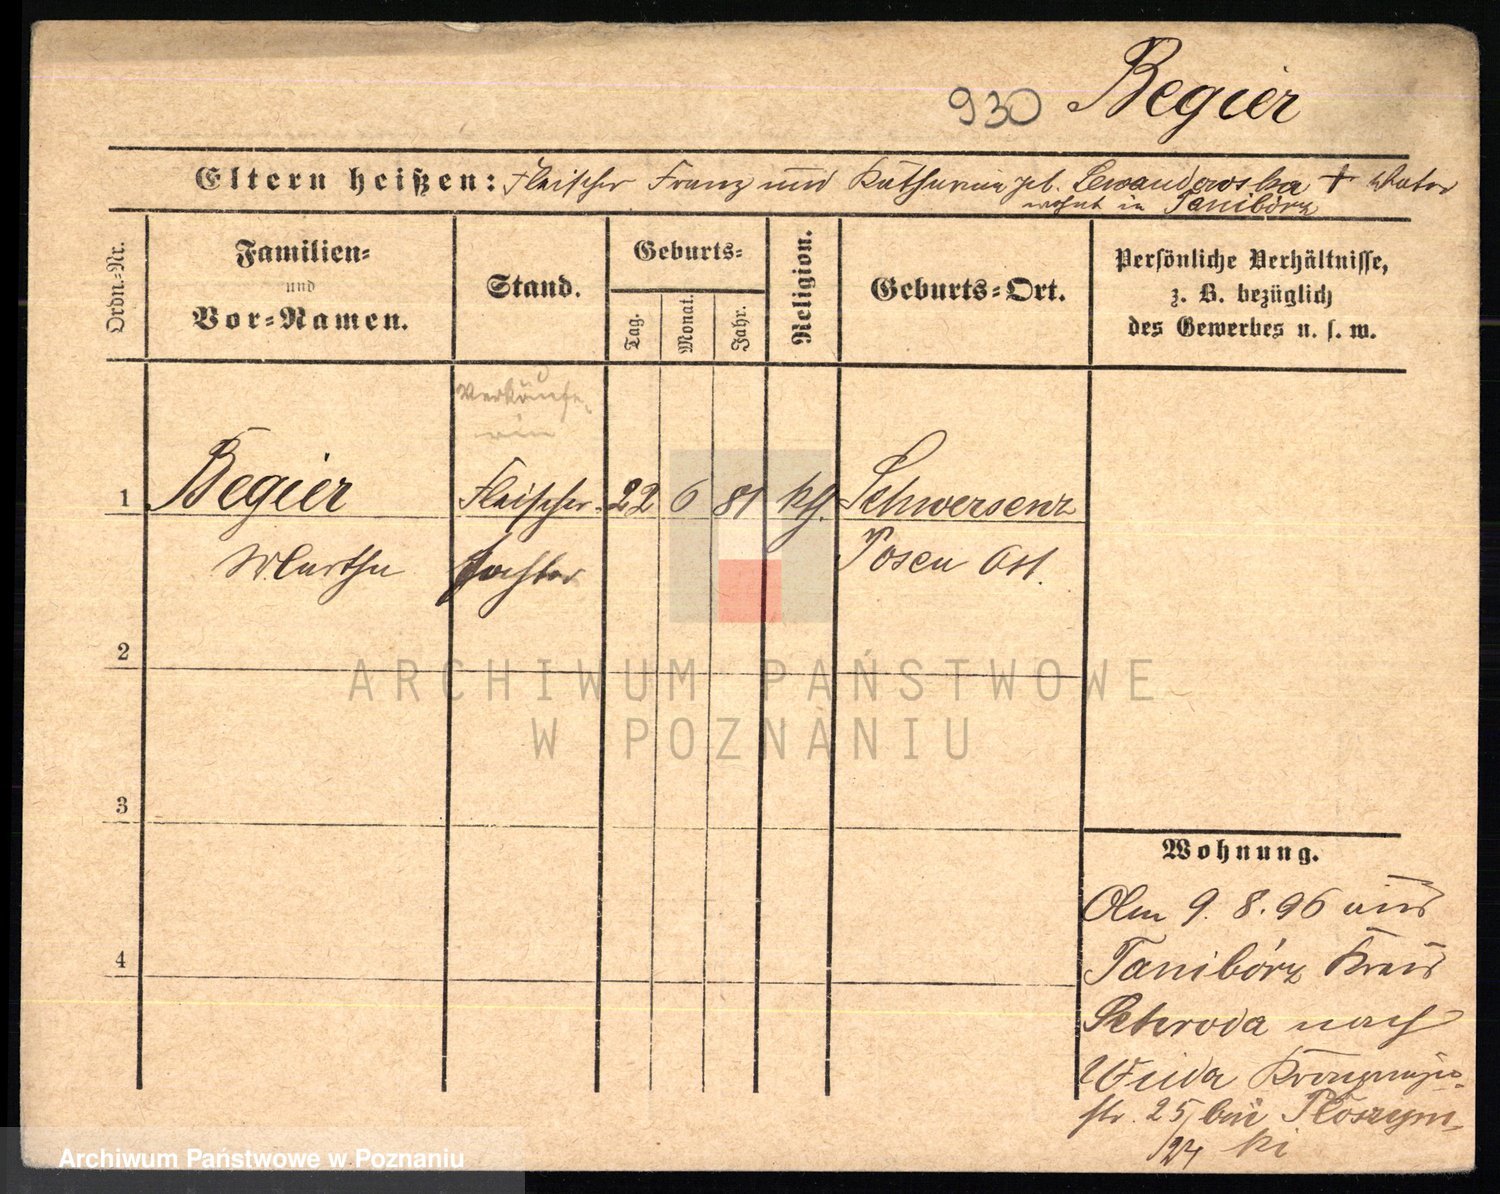 930 Begier
Eltern heißen: Fleischer Franz und Katharina geb. Lewandowska † Vater
wohnt in Tanibórz
Ordn.-Nr.
Familien-
und
Vor-Namen.
Stand.
Geburts-
Tag.
Monat.
Jahr.
Religion.
Geburts-Ort.
Persönliche Verhältnisse,
z. B. bezüglich
des Gewerbes u. s. w.
Verkäufe-
rin
1 Begier Fleischer- 22 6 81 kth. Schwersenz
Martha tochter Posen Ost.
2
ARCHIWUM PAŃSTWOWE
W POZNANIU
3
Wohnung.
4
Am 9. 8. 96 aus
Tanibórz Kreis
Schroda nach
Wilda Kronprinzen-
str. 25 bei
24 ki
Archiwum Państwowe w Poznaniu